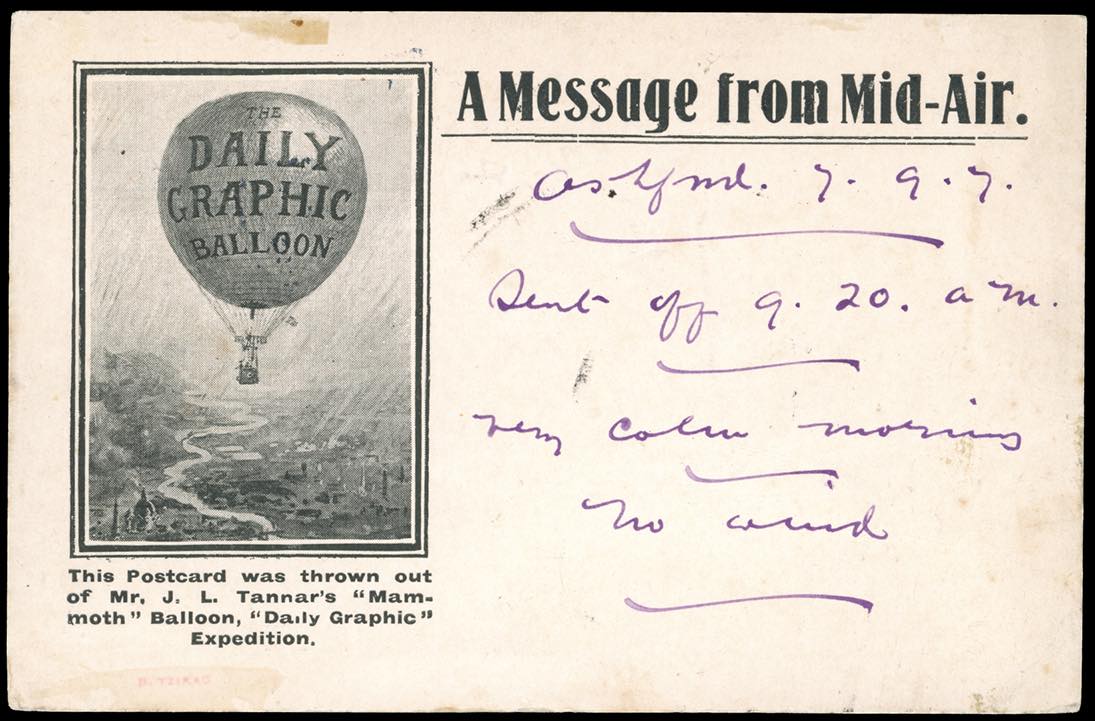 THE
DAILY
GRAPHIC
BALLOON
This Postcard was thrown out
of Mr. J. L. Tannar's “Mam-
moth” Balloon, “Daily Graphic”
Expedition.
A Message from Mid-Air.
Ashford. 7. 9. 7.
Sent off 9. 20. a m.
very calm morning
No wind